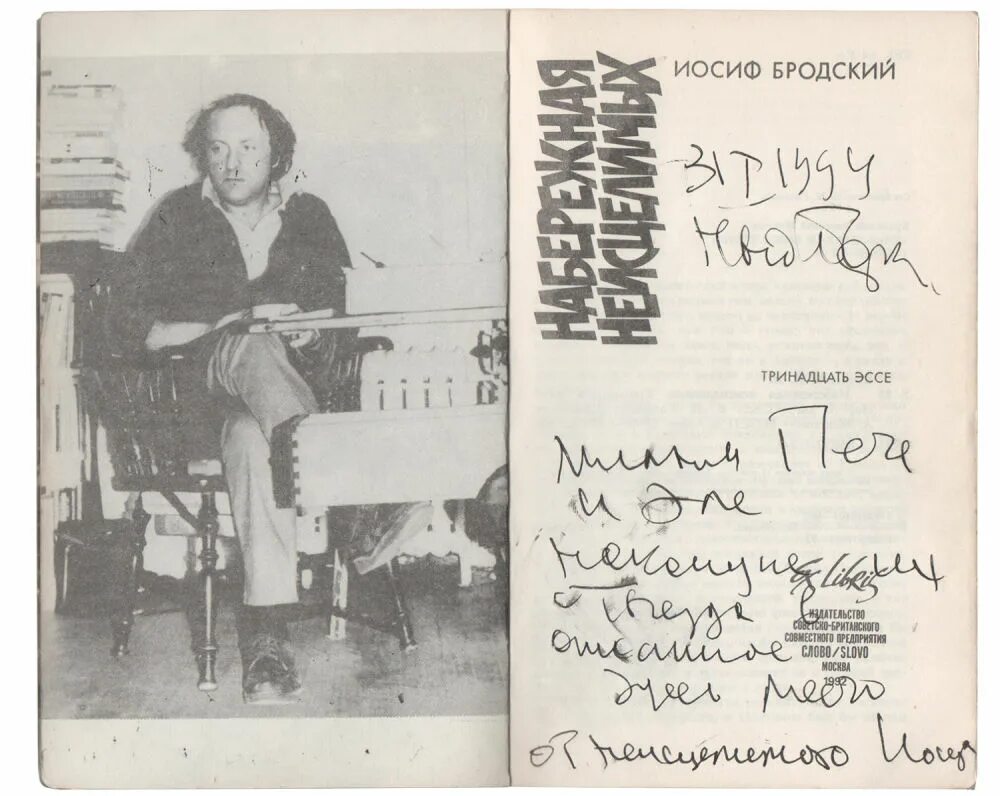 ИОСИФ БРОДСКИЙ
НАБЕРЕЖНАЯ
НЕИСЦЕЛИМЫХ
31 I 1994
Нью Йорк,
ТРИНАДЦАТЬ ЭССЕ
Милым Пете
и Эле
накануне их
отъезда в
описанное
здесь место
от неисцелимого Иосифа
Ex Libris
ИЗДАТЕЛЬСТВО
СОВЕТСКО-БРИТАНСКОГО
СОВМЕСТНОГО ПРЕДПРИЯТИЯ
СЛОВО/SLOVO
МОСКВА
1992